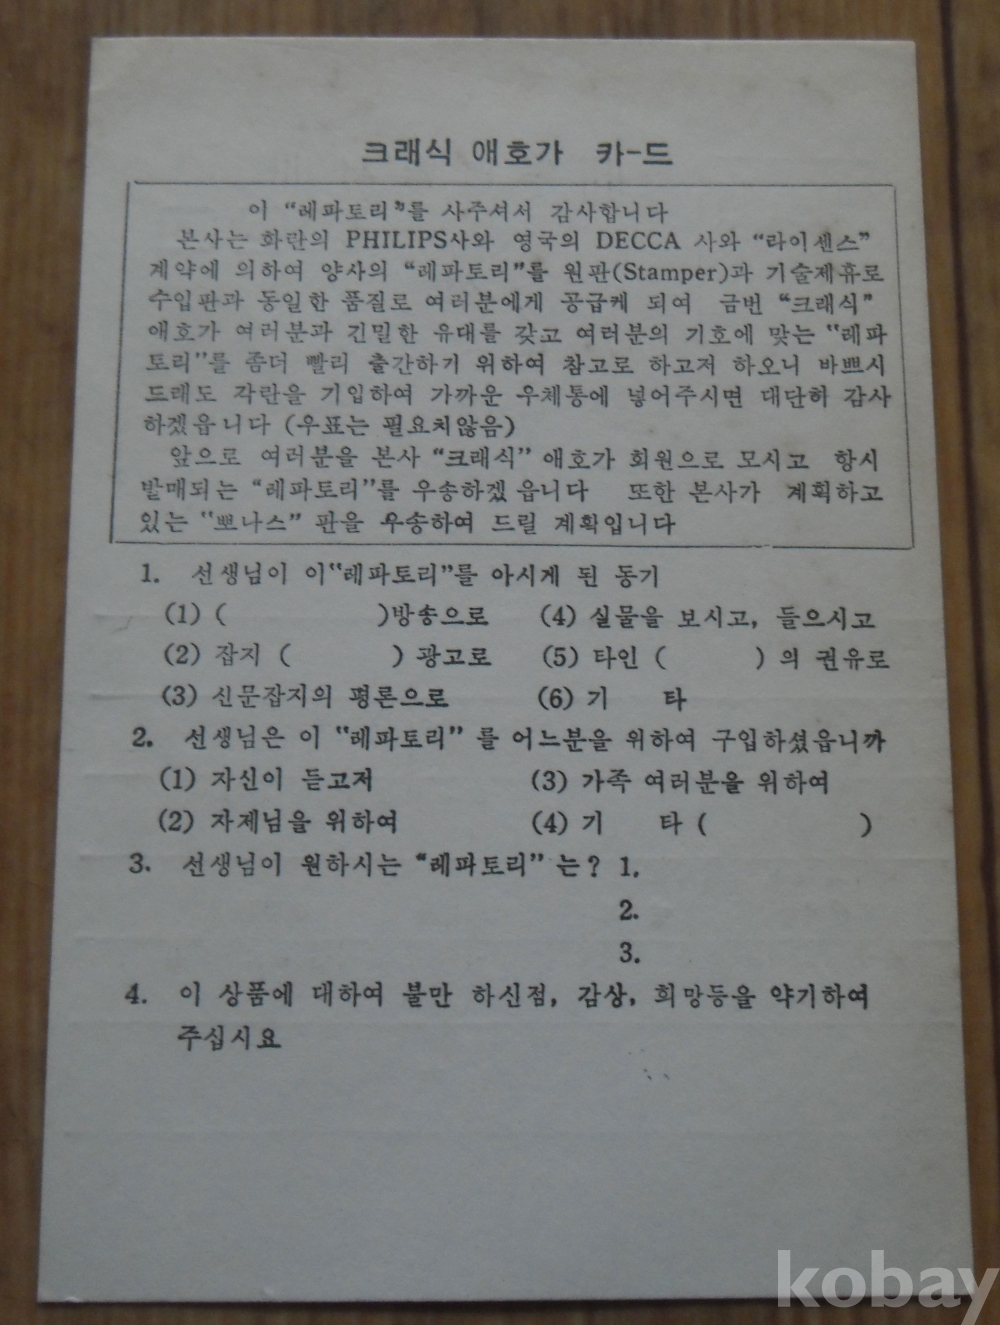 크래식 애호가 카-드
이 “레파토리”를 사주셔서 감사합니다
본사는 화란의 PHILIPS사와 영국의 DECCA 사와 “라이센스”
계약에 의하여 양사의 “레파토리”를 원판(Stamper)과 기술제휴로
수입판과 동일한 품질로 여러분에게 공급케 되여 금번 “크래식”
애호가 여러분과 긴밀한 유대를 갖고 여러분의 기호에 맞는 “레파
토리”를 좀더 빨리 출간하기 위하여 참고로 하고저 하오니 바쁘시
드래도 각란을 기입하여 가까운 우체통에 넣어주시면 대단히 감사
하겠읍니다 (우표는 필요치않음)
앞으로 여러분을 본사 “크래식” 애호가 회원으로 모시고 항시
발매되는 “레파토리”를 우송하겠읍니다 또한 본사가 계획하고
있는 “뽀나스” 판을 우송하여 드릴 계획입니다
1. 선생님이 이“레파토리”를 아시게 된 동기
(1) ( )방송으로 (4) 실물을 보시고, 들으시고
(2) 잡지 ( ) 광고로 (5) 타인 ( ) 의 권유로
(3) 신문잡지의 평론으로 (6) 기 타
2. 선생님은 이 “레파토리” 를 어느분을 위하여 구입하셨읍니까
(1) 자신이 듣고저 (3) 가족 여러분을 위하여
(2) 자제님을 위하여 (4) 기 타 ( )
3. 선생님이 원하시는 “레파토리” 는? 1.
2.
3.
4. 이 상품에 대하여 불만 하신점, 감상, 희망등을 약기하여
주십시요
kobay